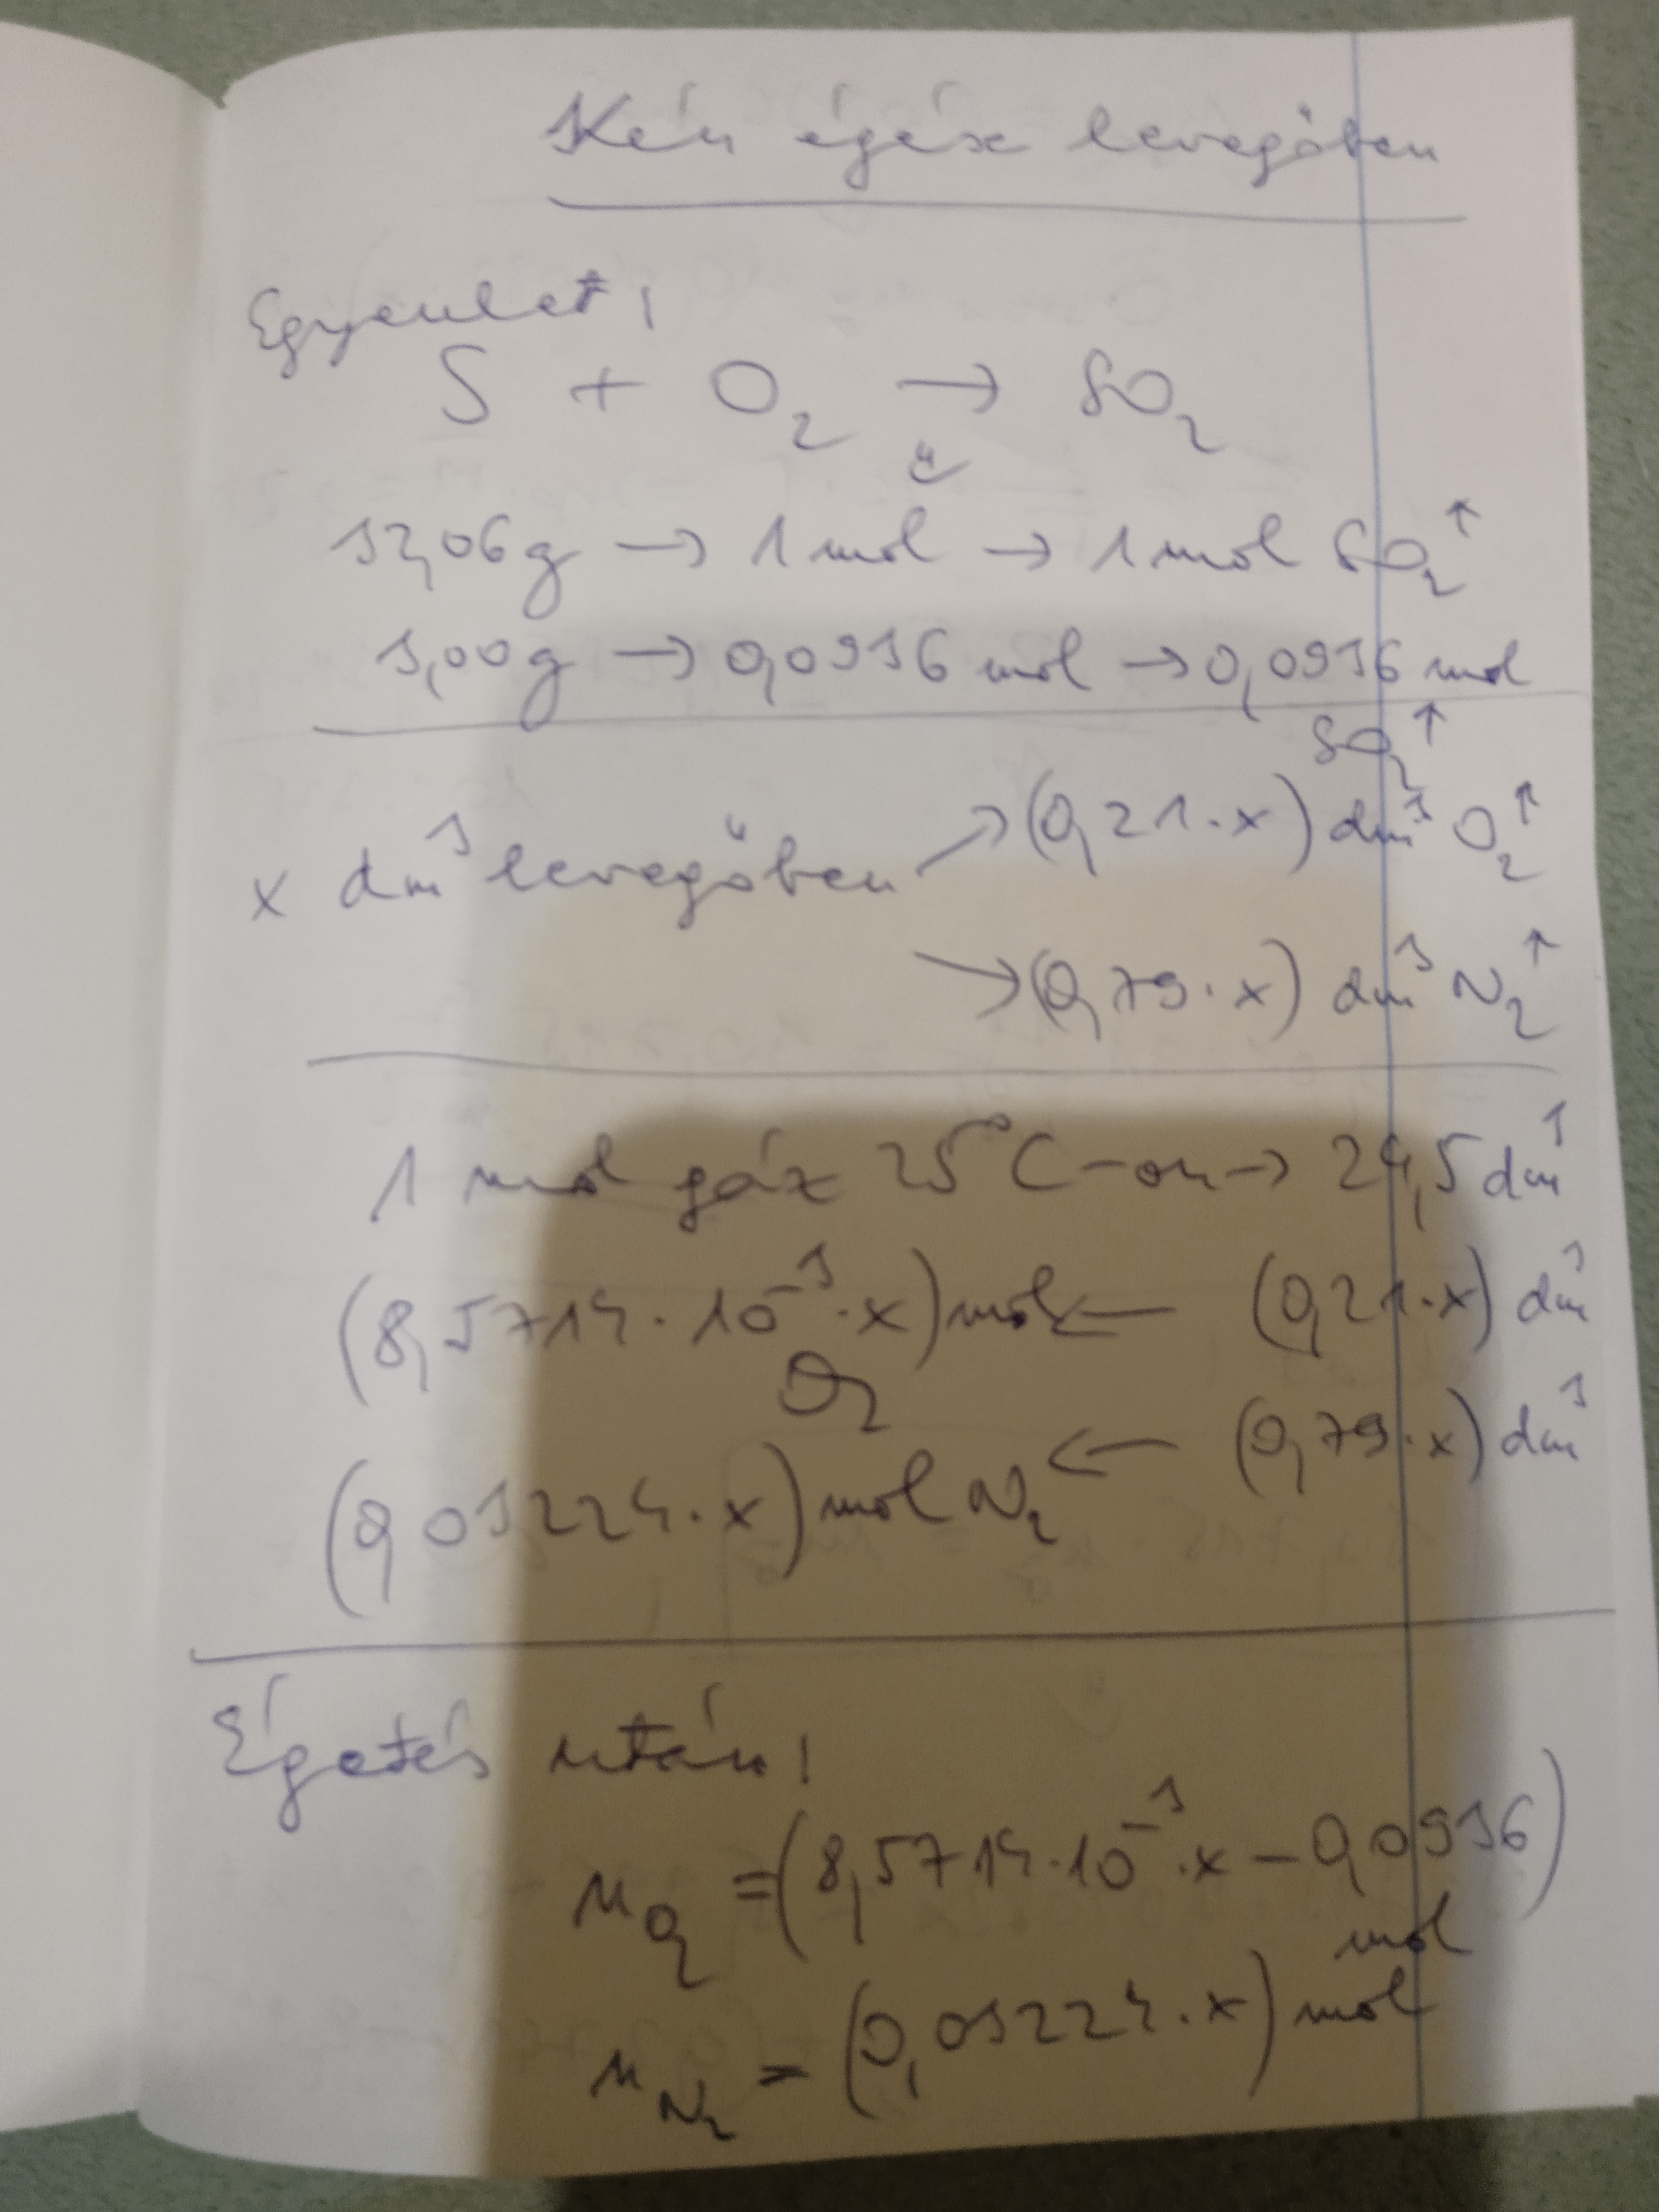 Kén égése levegőben
Egyenlet:
S + O₂ → SO₂
32,06 g → 1 mol → 1 mol SO₂↑
3,00 g → 0,0936 mol → 0,0936 mol
SO₂↑
x dm³ levegőben → (0,21·x) dm³ O₂↑
→ (0,79·x) dm³ N₂↑
1 mol gáz 25°C-on → 24,5 dm³
(8,5714·10⁻³·x) mol ← (0,21·x) dm³
O₂
(0,03224·x) mol N₂ ← (0,79·x) dm³
Égetés után:
n O₂ = (8,5714·10⁻³·x – 0,0936)
mol
n N₂ = (0,03224·x) mol